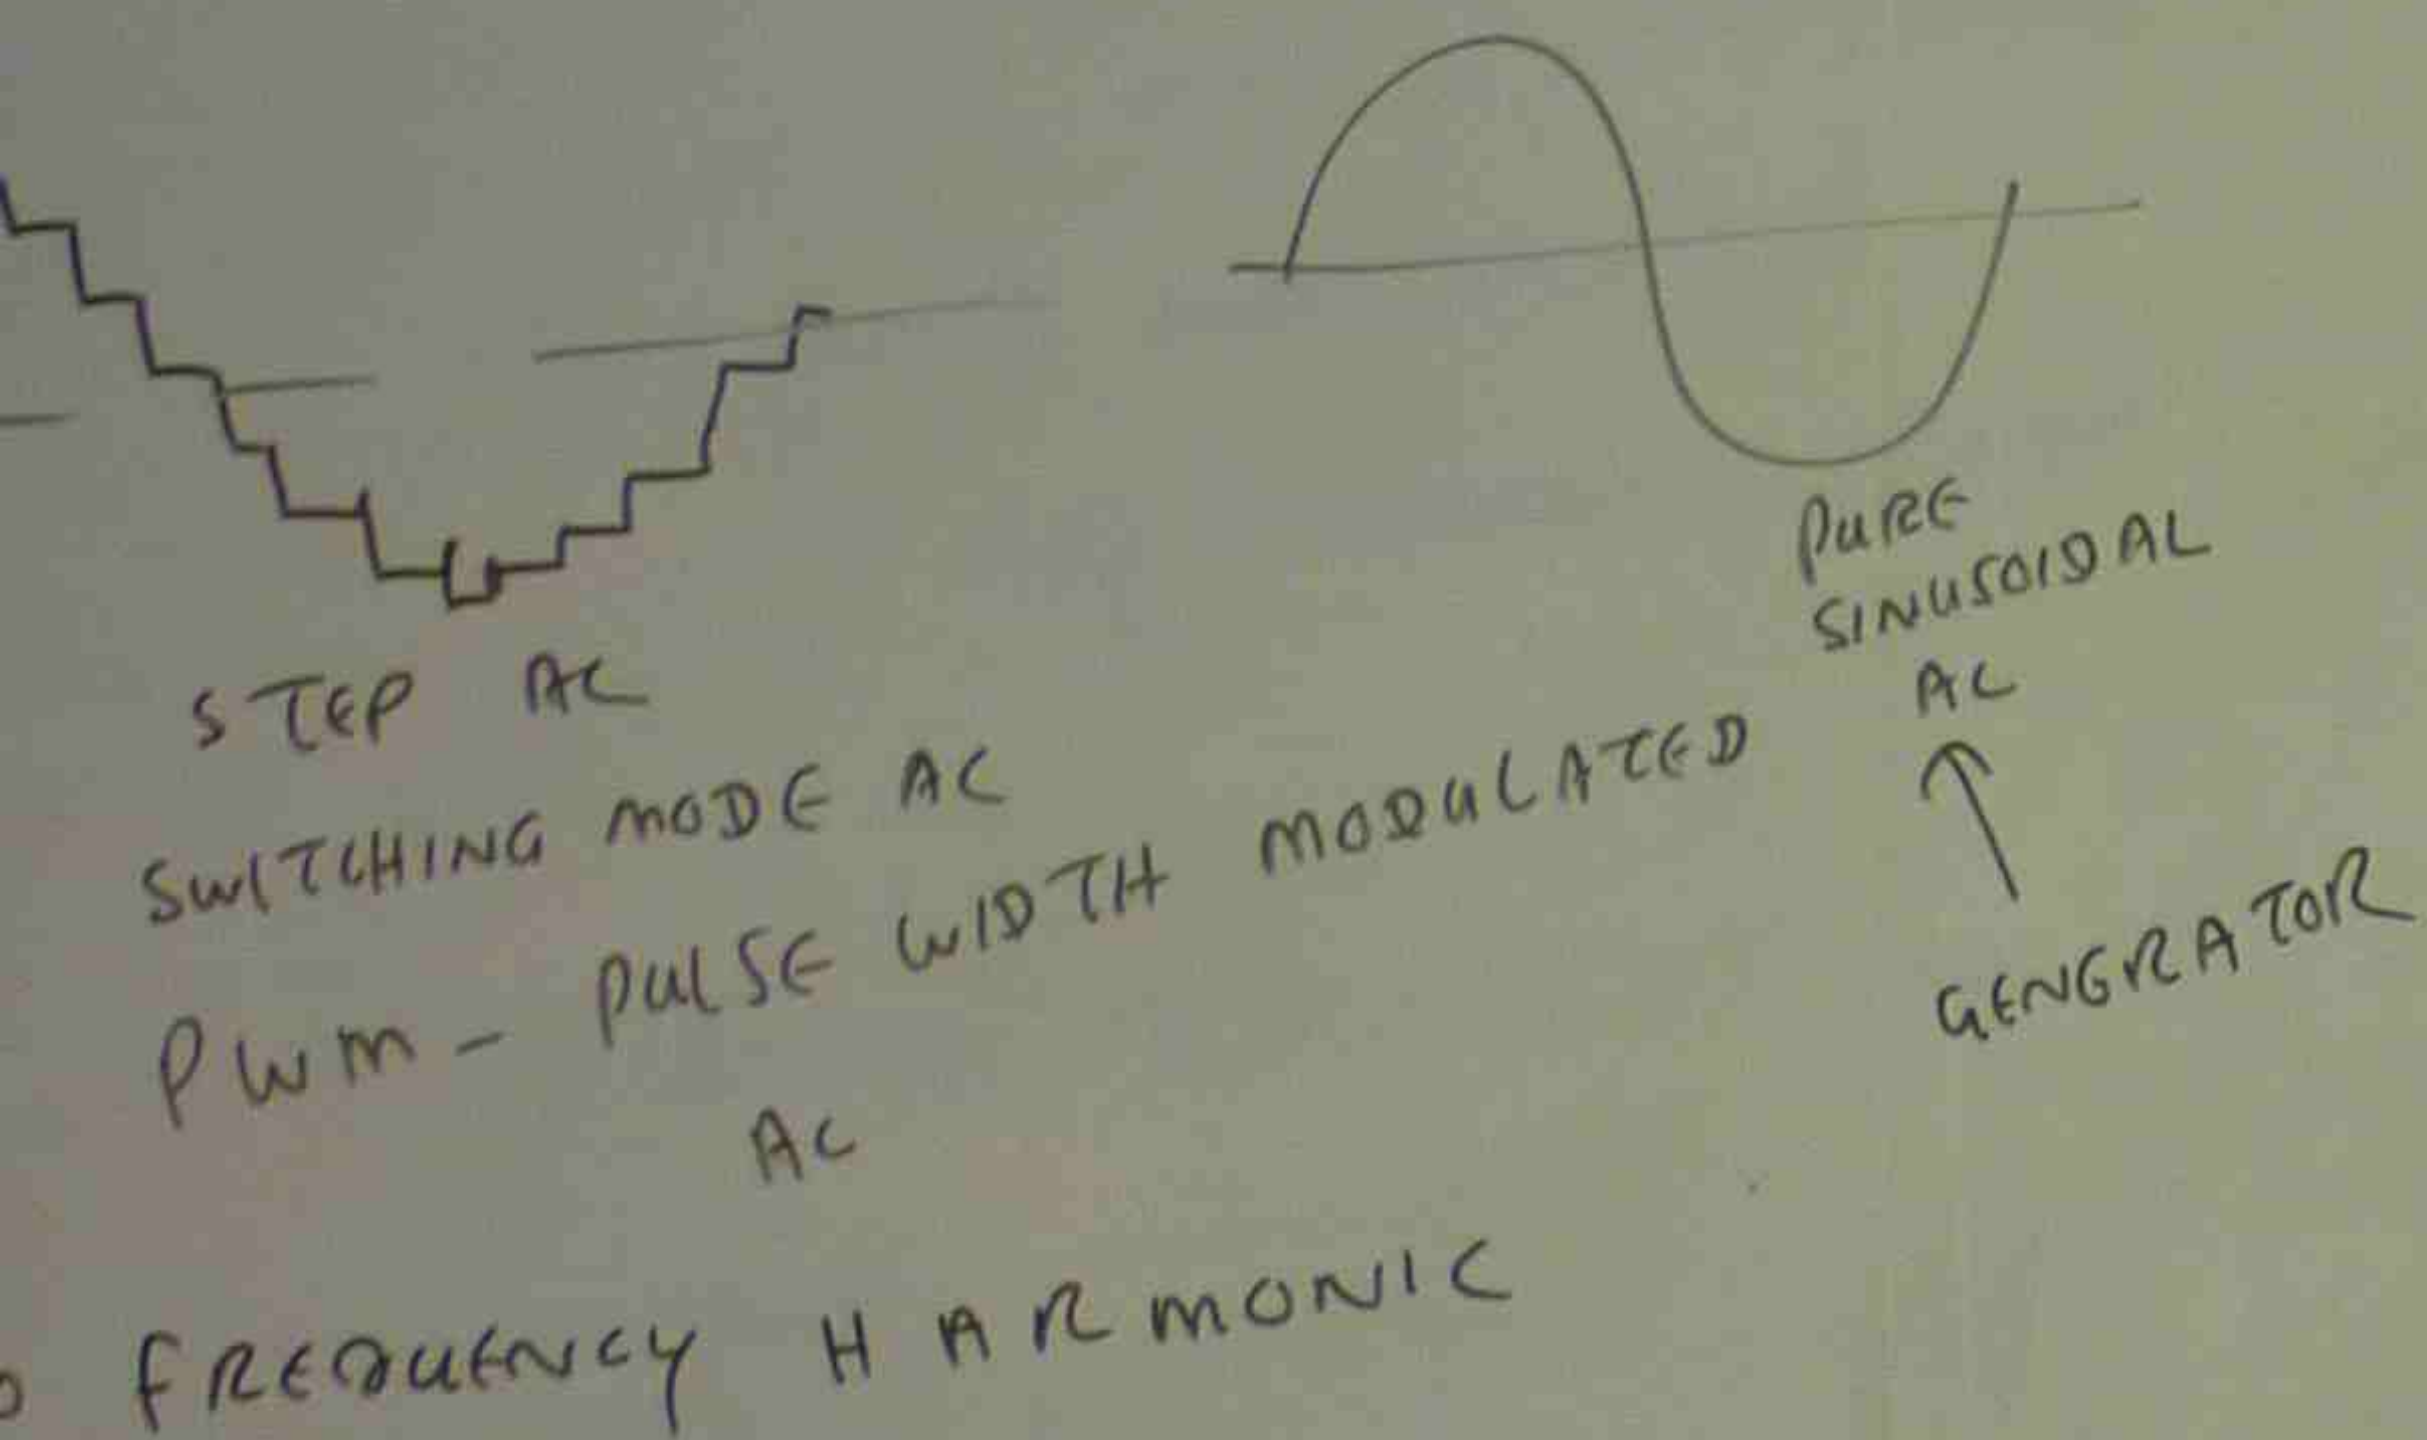 STEP AC
SWITCHING MODE AC
PWM - PULSE WIDTH MODULATED
AC
PURE
SINUSOIDAL
AC
GENERATOR
FREQUENCY HARMONIC